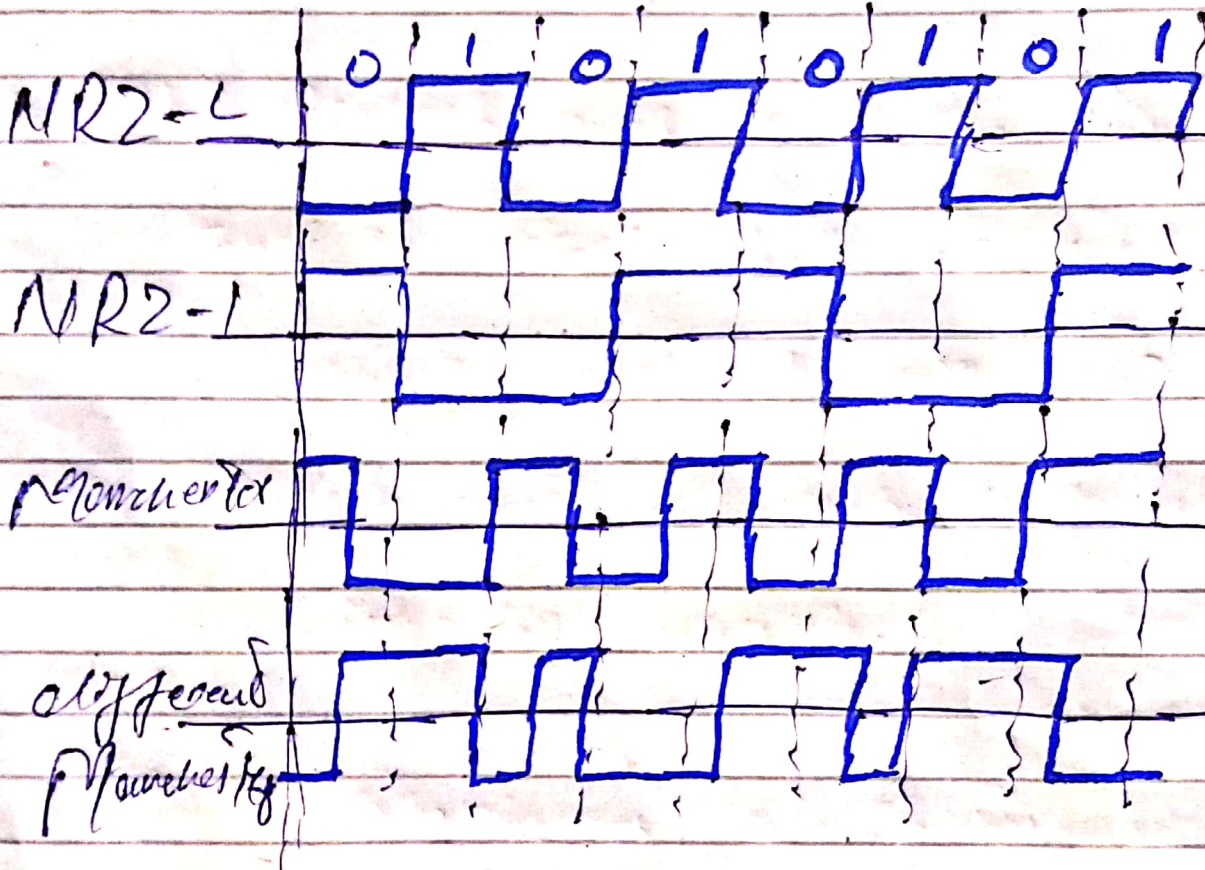 0 1 0 1 0 1 0 1
NRZ-L
NRZ-I
Manchester
different
Manchester